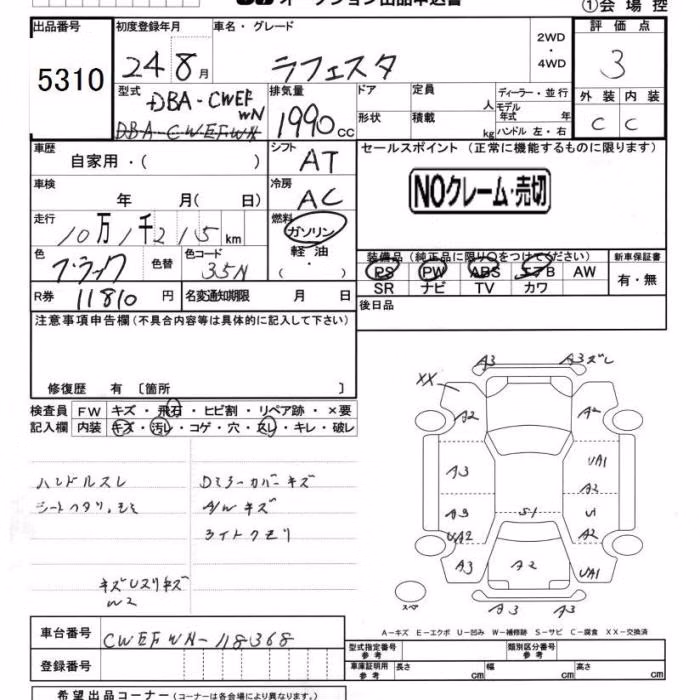 オークション出品申込書
①会場控
出品番号 5310
初度登録年月 24 8月
車名・グレード ラフェスタ
2WD・4WD
評価点 3
外装 C 内装 C
型式 DBA-CWEFWN
DBA-CWEFWN
排気量 1990cc
ドア 形状
定員 人
積載 kg
ディーラー・並行
モデル年式 年
ハンドル 左・右
車歴 自家用・( )
シフト AT
セールスポイント (正常に機能するものに限ります)
NOクレーム・売切
車検 年 月( 日)
冷房 AC
走行 10万1千215km
燃料 ガソリン
軽油・( )
色 ブラック 色替
色コード 35N
装備品 (純正品に限り○をつけてください)
新車保証書 有・無
PS PW ABS エアB AW
SR ナビ TV カワ
R券 11810円
名変通知期限 月 日
後日品
注意事項申告欄 (不具合内容等は具体的に記入して下さい)
修復歴 有 〔箇所 〕
検査員記入欄
FW キズ・飛石・ヒビ割・リペア跡・×要
内装 キズ・汚レ・コゲ・穴・スレ・キレ・破レ
ハンドルスレ
シートヘタリ、ヨゴミ
Dミラーカバーキズ
A/Wキズ
ライトクモリ
キズUスリキズ
W2
A3 A3ズレ
XX
A2 A2
A3 UA1
A2
A3 S1 S1
UA2 A2
A3 A2 UA1
A3 A3
スペア
A-キズ E-エクボ U-凹み W-補修跡 S-サビ C-腐食 XX-交換済
車台番号 CWEFWN-118368
登録番号
型式指定番号 参考
類別区分番号 参考
車庫証明用 参考 長さ cm 幅 cm 高さ cm
希望出品コーナー (コーナーは各会場により異なります。)